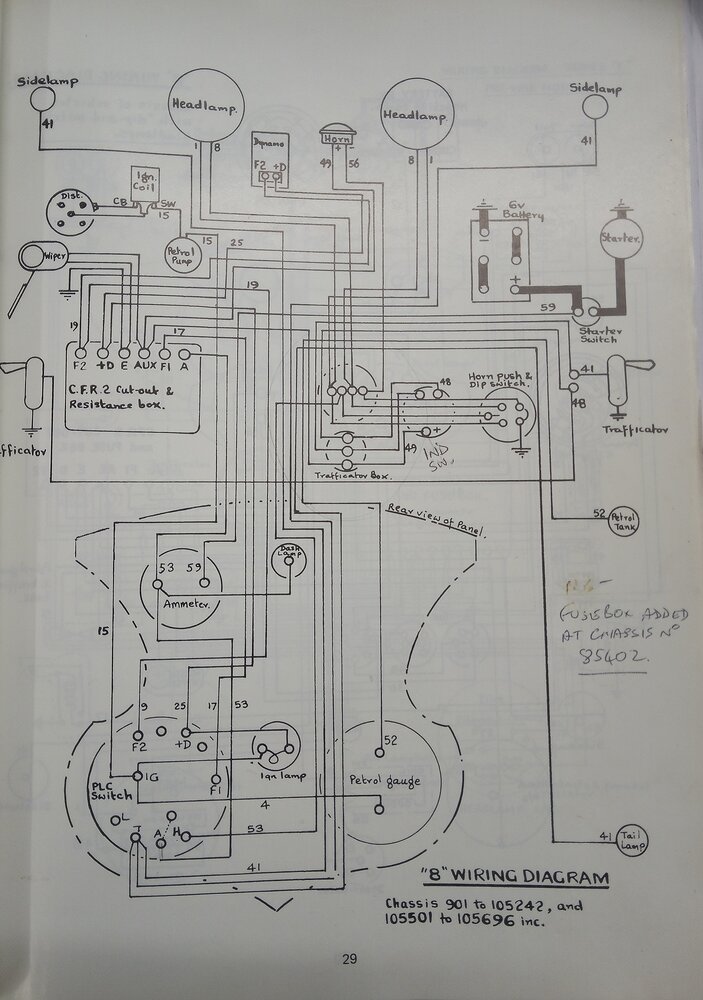 Sidelamp
Headlamp.
Headlamp.
Sidelamp
41
1
8
Dynamo
F2 +D
Horn
+ -
49
56
8
1
41
Ign.
Coil
Dist.
CB
SW
15
Petrol
Pump
15
25
6v
Battery
-
+
Starter.
Wiper
19
59
Starter
Switch
19
17
F2 +D E AUX F1 A
C.F.R.2 Cut-out &
Resistance box.
48
Horn push &
Dip switch.
41
48
Trafficator
fficator
+
49
IND
SW.
Trafficator Box.
Rear view of Panel.
52
Petrol
Tank
53
59
Ammeter.
Dash
Lamp
FUSEBOX ADDED
AT CHASSIS No
85402.
15
9
25
17
53
F2
+D
52
IG
PLC
Switch
F1
Ign lamp
Petrol gauge
4
L
T
A
H
53
41
41
Tail
Lamp
"8" WIRING DIAGRAM
Chassis 901 to 105242, and
105501 to 105696 inc.
29